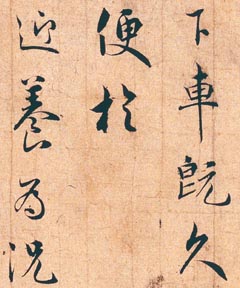 下車既久
便於
迎養為況